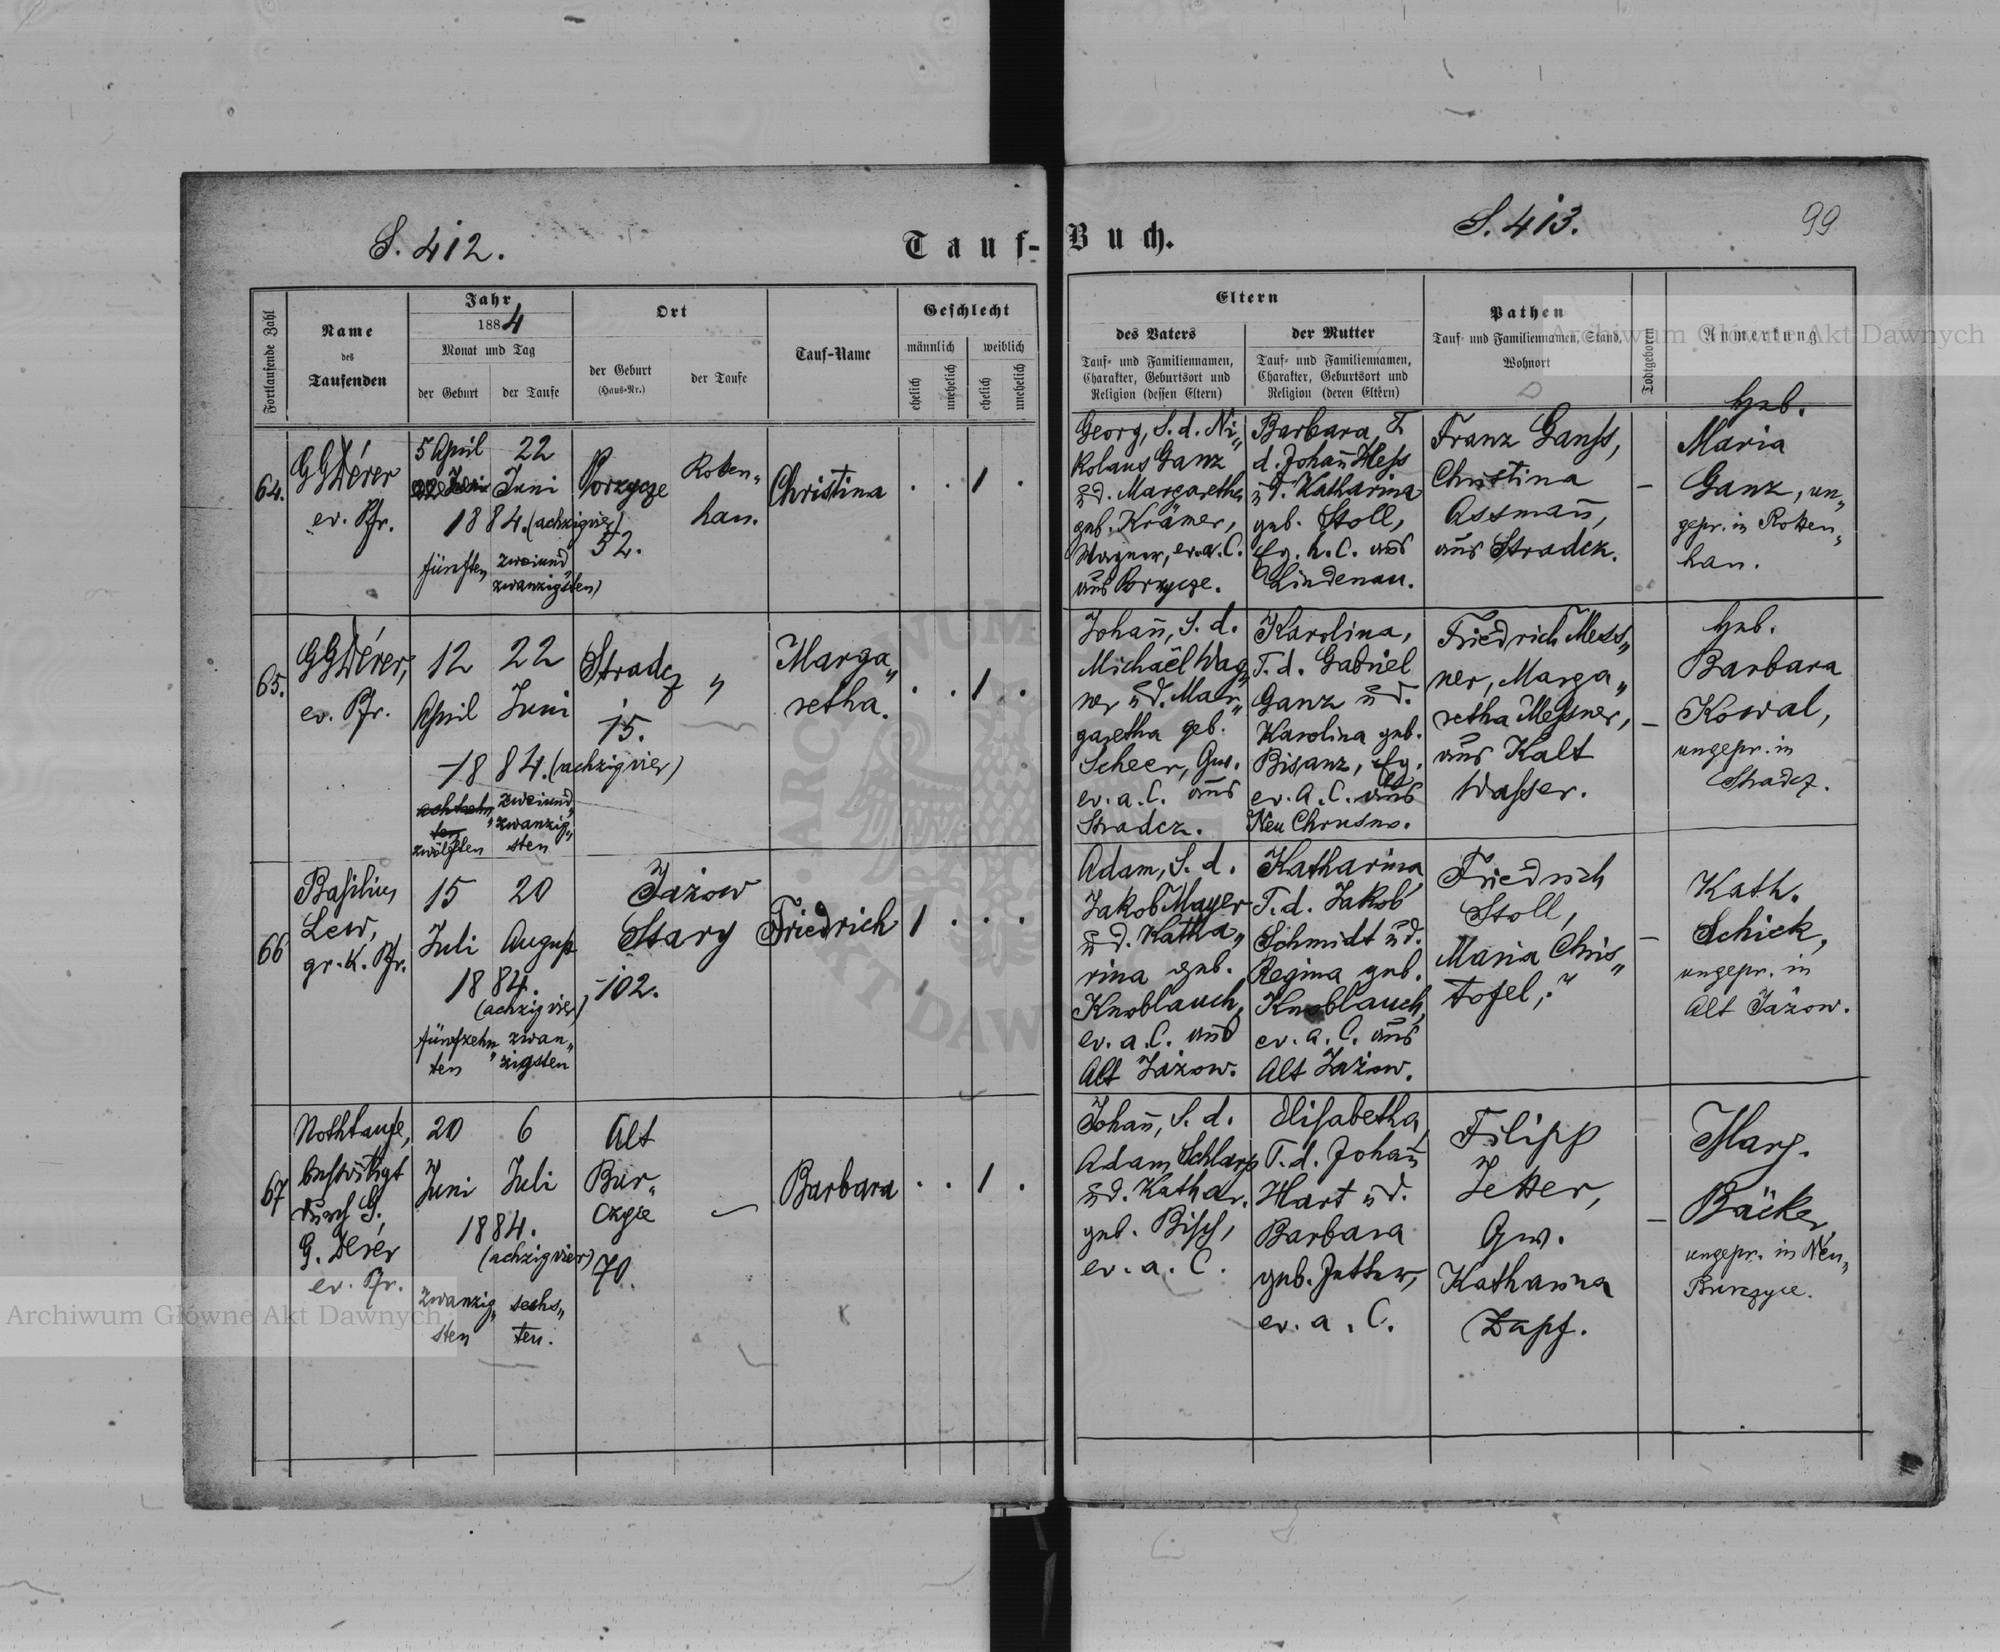 S. 412.
Tauf-Buch.
S. 413.
99
Fortlaufende Zahl
Name
des
Taufenden
Jahr
1884
Monat und Tag
der Geburt
der Taufe
Ort
der Geburt
(Haus-Nr.)
der Taufe
Tauf-Name
Geschlecht
männlich
weiblich
ehelich
unehelich
ehelich
unehelich
Eltern
des Vaters
Tauf- und Familiennamen,
Charakter, Geburtsort und
Religion (dessen Eltern)
der Mutter
Tauf- und Familiennamen,
Charakter, Geburtsort und
Religion (deren Eltern)
Pathen
Tauf- und Familiennamen, Stand,
Wohnort
Todtgeboren
Anmerkung
Archiwum Główne Akt Dawnych
64.
GGDérer
ev. Pfr.
5 April
22
Juni
1884. (achzigvier)
fünften
zweiund„
zwanzigsten)
Porzycze
52.
Rotten„
han.
Christina
. . 1 .
Georg, S. d. Ni„
kolaus Ganz
u d. Margaretha
geb. Krämer,
Wagner, ev. a. C.
aus Porzycze.
Barbara, T.
d. Johann Hess
u d. Katharina
geb. Stoll,
ev. h. C. aus
Lindenau.
Franz Ganss,
Christina
Assmann,
aus Stradcz.
–
Heb.
Maria
Ganz, un„
gepr. in Rotten„
han.
65.
GGDérer,
ev. Pfr.
12
April
22
Juni
1884. (achzigvier)
achtzehn„
ten
zwölften
zweiund„
zwanzig„
sten
Stradcz
15.
„
Marga„
retha.
. . 1 .
Johann, S. d.
Michael Wag„
ner u d. Mar„
garetha geb.
Scheer, Gw.
ev. a. C. aus
Stradcz.
Karolina,
T. d. Gabriel
Ganz u d.
Karolina geb.
Bisanz,
ev. a. C. aus
Neu Chrusno.
Friedrich Mess„
ner, Marga„
retha Messner,
aus Kalt
Wasser.
–
Heb.
Barbara
Kowal,
ungepr. in
Stradcz.
66
Basilius
Lew,
gr. k. Pfr.
15
Juli
20
August
1884.
(achzigvier)
fünfzehn„
ten
zwan„
zigsten
Jażow
Stary
102.
Friedrich
1 . . .
Adam, S. d.
Jakob Mayer
u d. Katha„
rina geb.
Knoblauch,
ev. a. C. aus
Alt Jażow.
Katharina
T. d. Jakob
Schmidt u d.
Regina geb.
Knoblauch,
ev. a. C. aus
Alt Jażow.
Friedrich
Stoll,
Maria Chris„
tofel, ?
–
Kath.
Schick,
ungepr. in
Alt Jażow.
67
Nothtaufe,
bestätigt
durch G.
G. Dérer
ev. Pfr.
20
Juni
6
Juli
1884.
(achzigvier)
zwanzig„
sten
sechs„
ten.
Alt
Bur„
czyce
70.
Barbara
. . 1 .
Johann, S. d.
Adam Schlarp
u d. Kathar.
geb. Bisch,
ev. a. C.
Elisabetha
T. d. Johann
Hart u d.
Barbara
geb. Jetter,
ev. a. C.
Filipp
Jetter,
Gw.
Katharina
Zapf.
–
Marg.
Bäcker,
ungepr. in Neu„
Burczyce.
Archiwum Główne Akt Dawnych